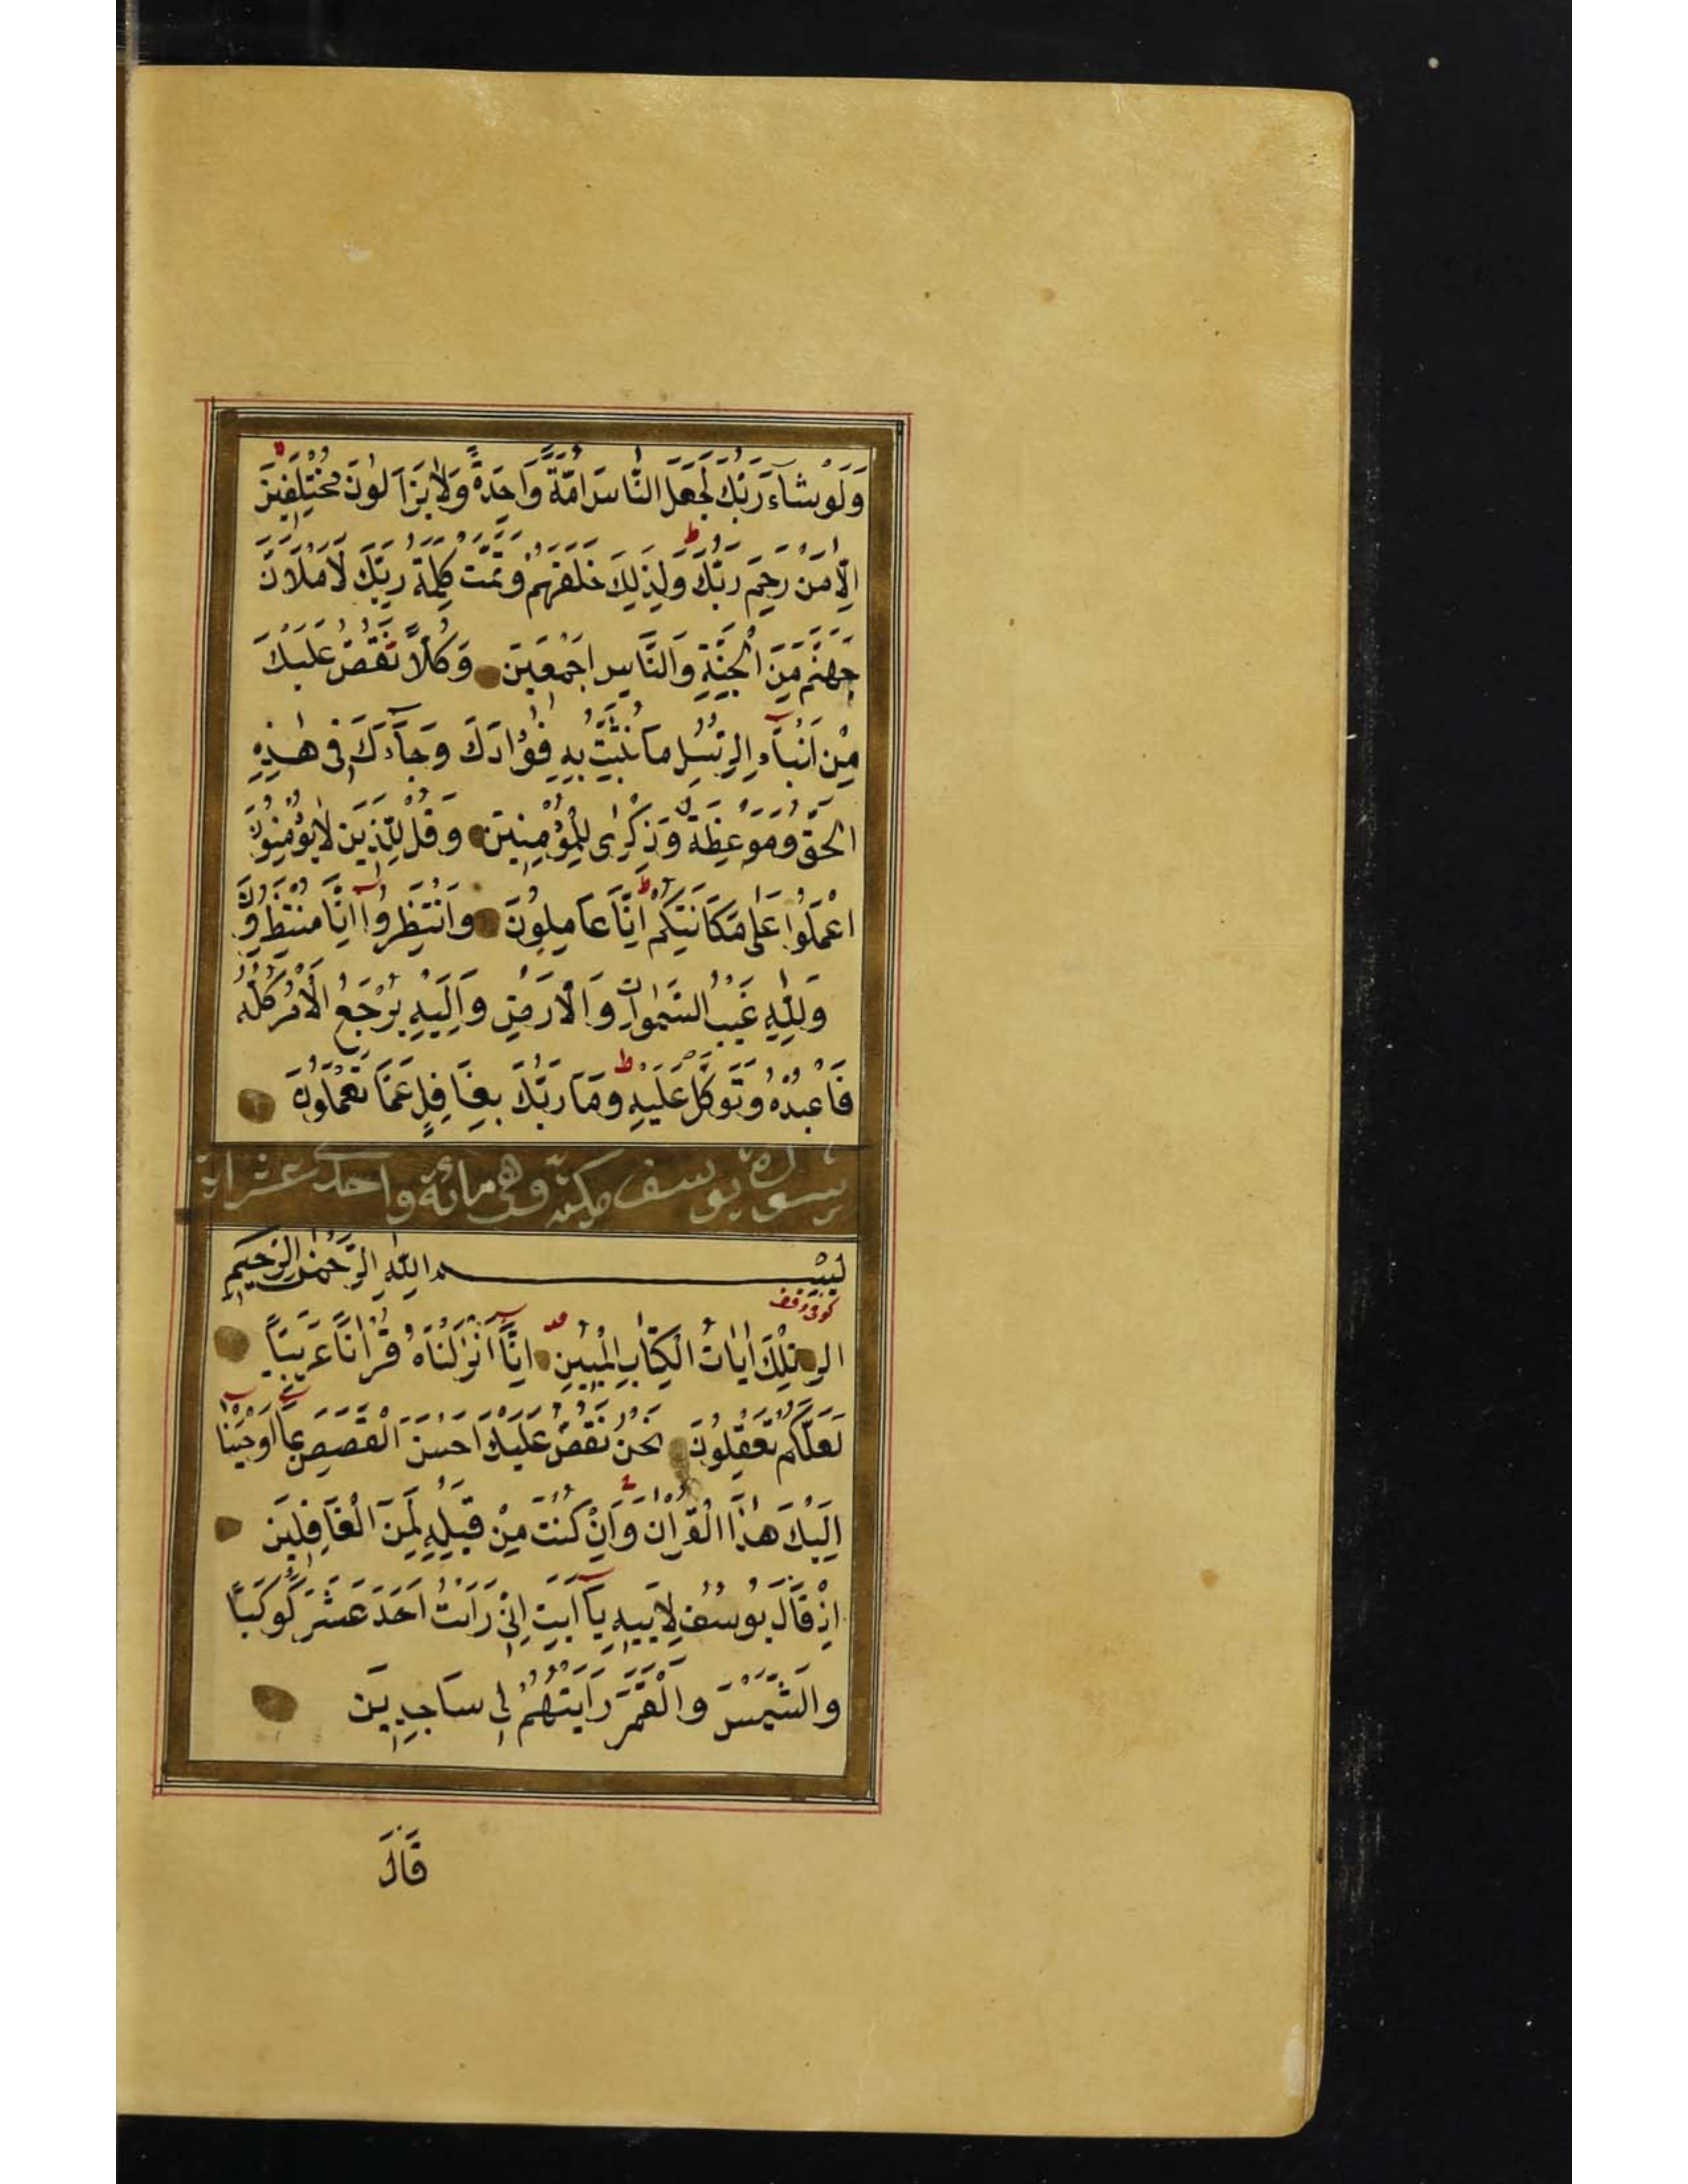 وَلَوْ شَآءَ رَبُّكَ لَجَعَلَ النَّاسَ اُمَّةً وَاحِدَةً وَلَا يَزَالُونَ مُخْتَلِفِينَ
اِلَّا مَنْ رَحِمَ رَبُّكَ وَلِذٰلِكَ خَلَقَهُمْ وَتَمَّتْ كَلِمَةُ رَبِّكَ لَاَمْلَاَنَّ
جَهَنَّمَ مِنَ الْجِنَّةِ وَالنَّاسِ اَجْمَعِينَ وَكُلًّا نَقُصُّ عَلَيْكَ
مِنْ اَنْبَآءِ الرُّسُلِ مَا نُثَبِّتُ بِهِ فُؤٰادَكَ وَجَآءَكَ فِى هٰذِهِ
الْحَقُّ وَمَوْعِظَةٌ وَذِكْرٰى لِلْمُؤْمِنِينَ وَقُلْ لِلَّذِينَ لَا يُؤْمِنُونَ
اعْمَلُوا عَلٰى مَكَانَتِكُمْ اِنَّا عَامِلُونَ وَانْتَظِرُوا اِنَّا مُنْتَظِرُونَ
وَلِلّٰهِ غَيْبُ السَّمٰوَاتِ وَالْاَرْضِ وَاِلَيْهِ يُرْجَعُ الْاَمْرُ كُلُّهُ
فَاعْبُدْهُ وَتَوَكَّلْ عَلَيْهِ وَمَا رَبُّكَ بِغَافِلٍ عَمَّا تَعْمَلُونَ
سورة يوسف مكية وهى مائة واحدى عشر اية
بِسْمِ اللّٰهِ الرَّحْمٰنِ الرَّحِيمِ
كوفى وقف
الر تِلْكَ اٰيَاتُ الْكِتَابِ الْمُبِينِ اِنَّا اَنْزَلْنَاهُ قُرْاٰنًا عَرَبِيًّا
لَعَلَّكُمْ تَعْقِلُونَ نَحْنُ نَقُصُّ عَلَيْكَ اَحْسَنَ الْقَصَصِ بِمَا اَوْحَيْنَا
اِلَيْكَ هٰذَا الْقُرْاٰنَ وَاِنْ كُنْتَ مِنْ قَبْلِهِ لَمِنَ الْغَافِلِينَ
اِذْ قَالَ يُوسُفُ لِاَبِيهِ يَا اَبَتِ اِنِّى رَاَيْتُ اَحَدَ عَشَرَ كَوْكَبًا
وَالشَّمْسَ وَالْقَمَرَ رَاَيْتُهُمْ لِى سَاجِدِينَ
قَالَ